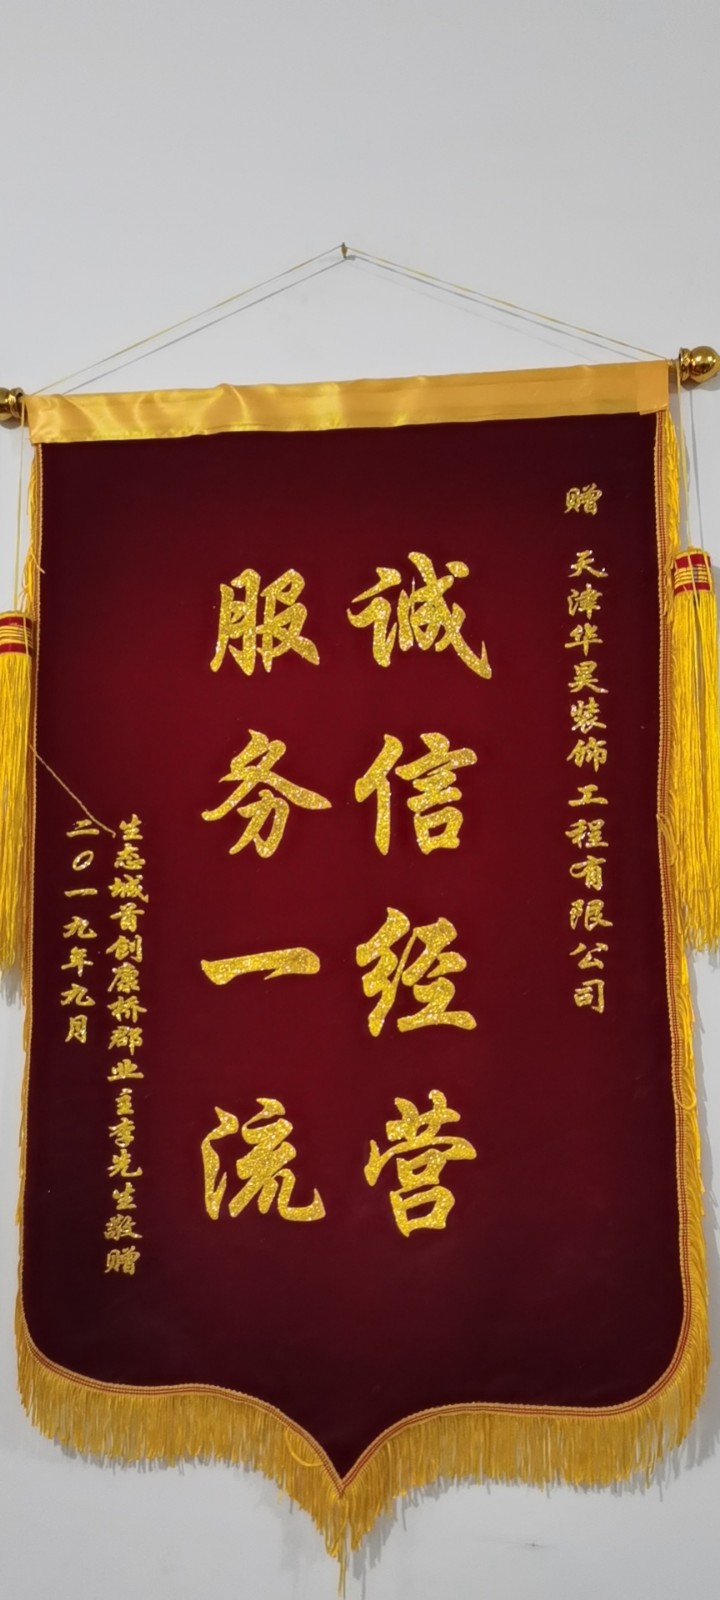 赠 天津华昊装饰工程有限公司
诚信经营
服务一流
生态城首创康桥郡业主李先生敬赠
二0一九年九月